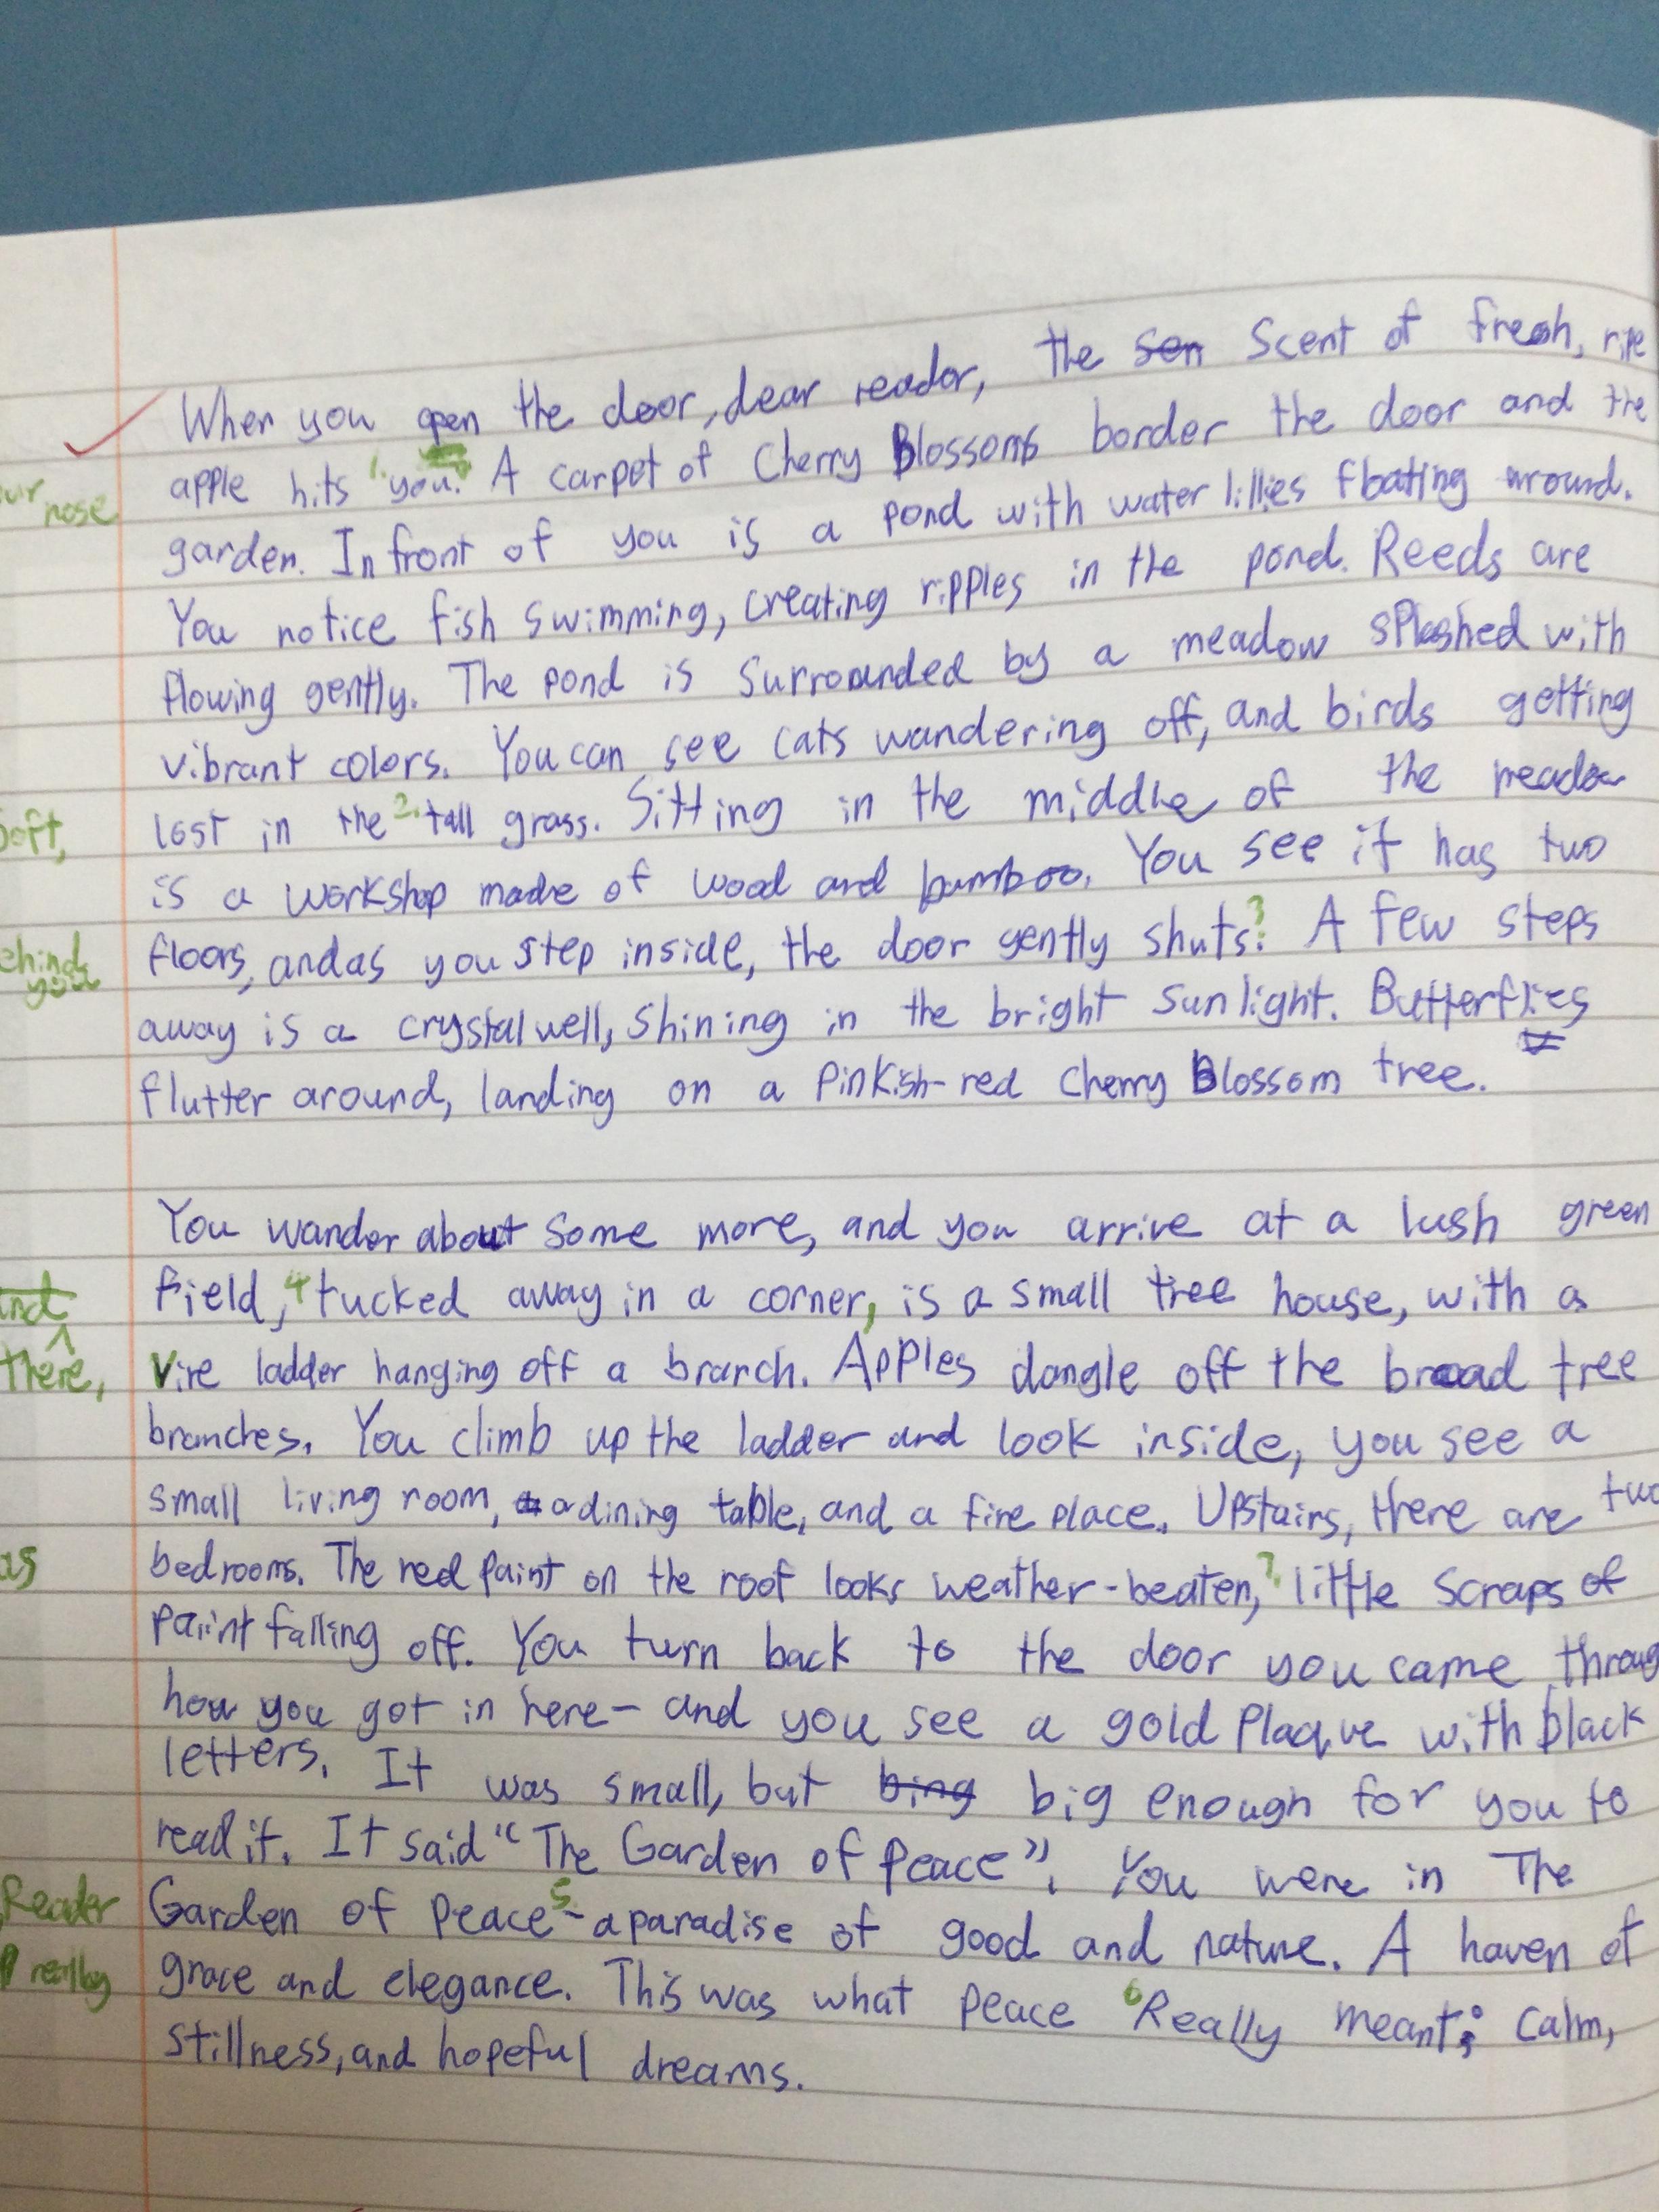 When you open the door, dear reader, the sen scent of fresh, ripe
apple hits 1. you. A carpet of Cherry Blossoms border the door and the
ur nose
garden. In front of you is a pond with water lillies floating around.
You notice fish swimming, creating ripples in the pond. Reeds are
flowing gently. The pond is surrounded by a meadow splashed with
vibrant colors. You can see cats wandering off, and birds getting
soft, lost in the 2. tall grass. Sitting in the middle of the meadow
is a workshop made of wood and bamboo. You see it has two
ehind you floors, and as you step inside, the door gently shuts 3. A few steps
away is a crystal well, shining in the bright sunlight. Butterflies
flutter around, landing on a pinkish-red cherry blossom tree.
You wander about some more, and you arrive at a lush green
and field, 4 tucked away in a corner, is a small tree house, with a
there, vire ladder hanging off a branch. Apples dangle off the broad tree
branches. You climb up the ladder and look inside, you see a
small living room, a dining table, and a fire place. Upstairs, there are two
as bedrooms. The red paint on the roof looks weather-beaten, ? little scraps of
paint falling off. You turn back to the door you came throug
how you got in here- and you see a gold plaque with black
letters. It was small, but bing big enough for you to
read it. It said "The Garden of Peace". You were in The
Reader Garden of Peace 5 - a paradise of good and nature. A haven of
really grace and elegance. This was what peace 6 Really meant; calm,
stillness, and hopeful dreams.